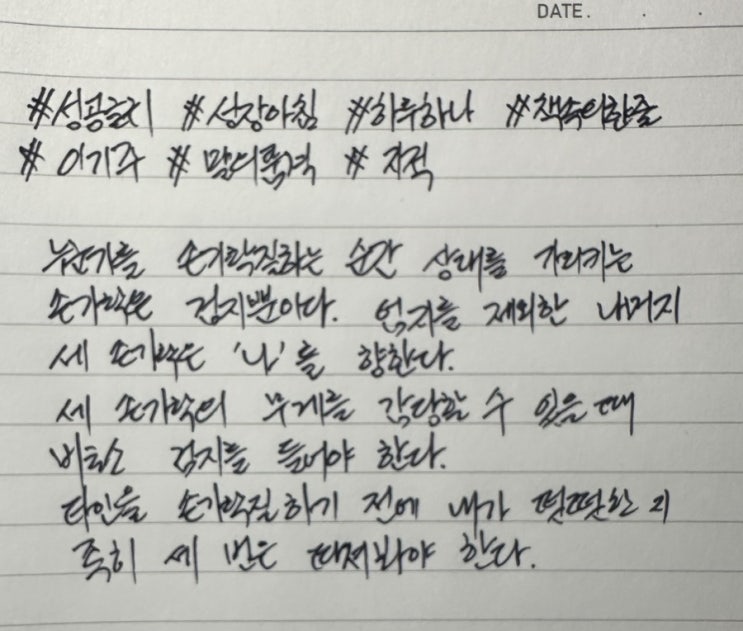 DATE. . .
#성공일지 #성장아침 #하루하나 #책속의한줄
#이기주 #말의품격 #지적
누군가를 손가락질하는 순간 상대를 가리키는
손가락은 검지뿐이다. 엄지를 제외한 나머지
세 손가락은 '나'를 향한다.
세 손가락의 무게를 감당할 수 있을 때
비로소 검지를 들어야 한다.
타인을 손가락질하기 전에 내가 떳떳한지
족히 세 번은 따져봐야 한다.